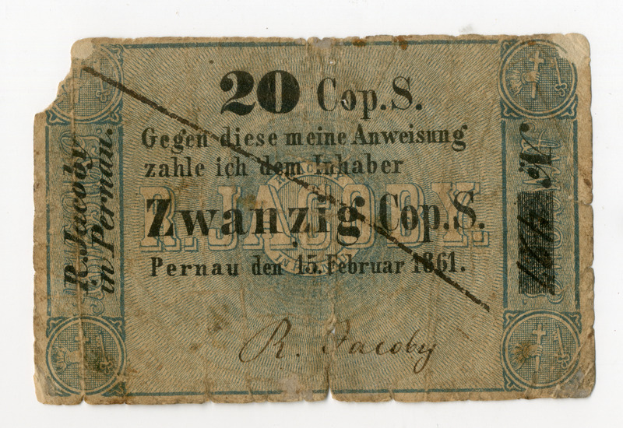 20 Cop.S.
Gegen diese meine Anweisung
zahle ich dem Inhaber
R. JACOBY.
Zwanzig Cop.S.
Pernau den 15. Februar 1861.
R. Jacoby
R. Jacoby
in Pernau.
№